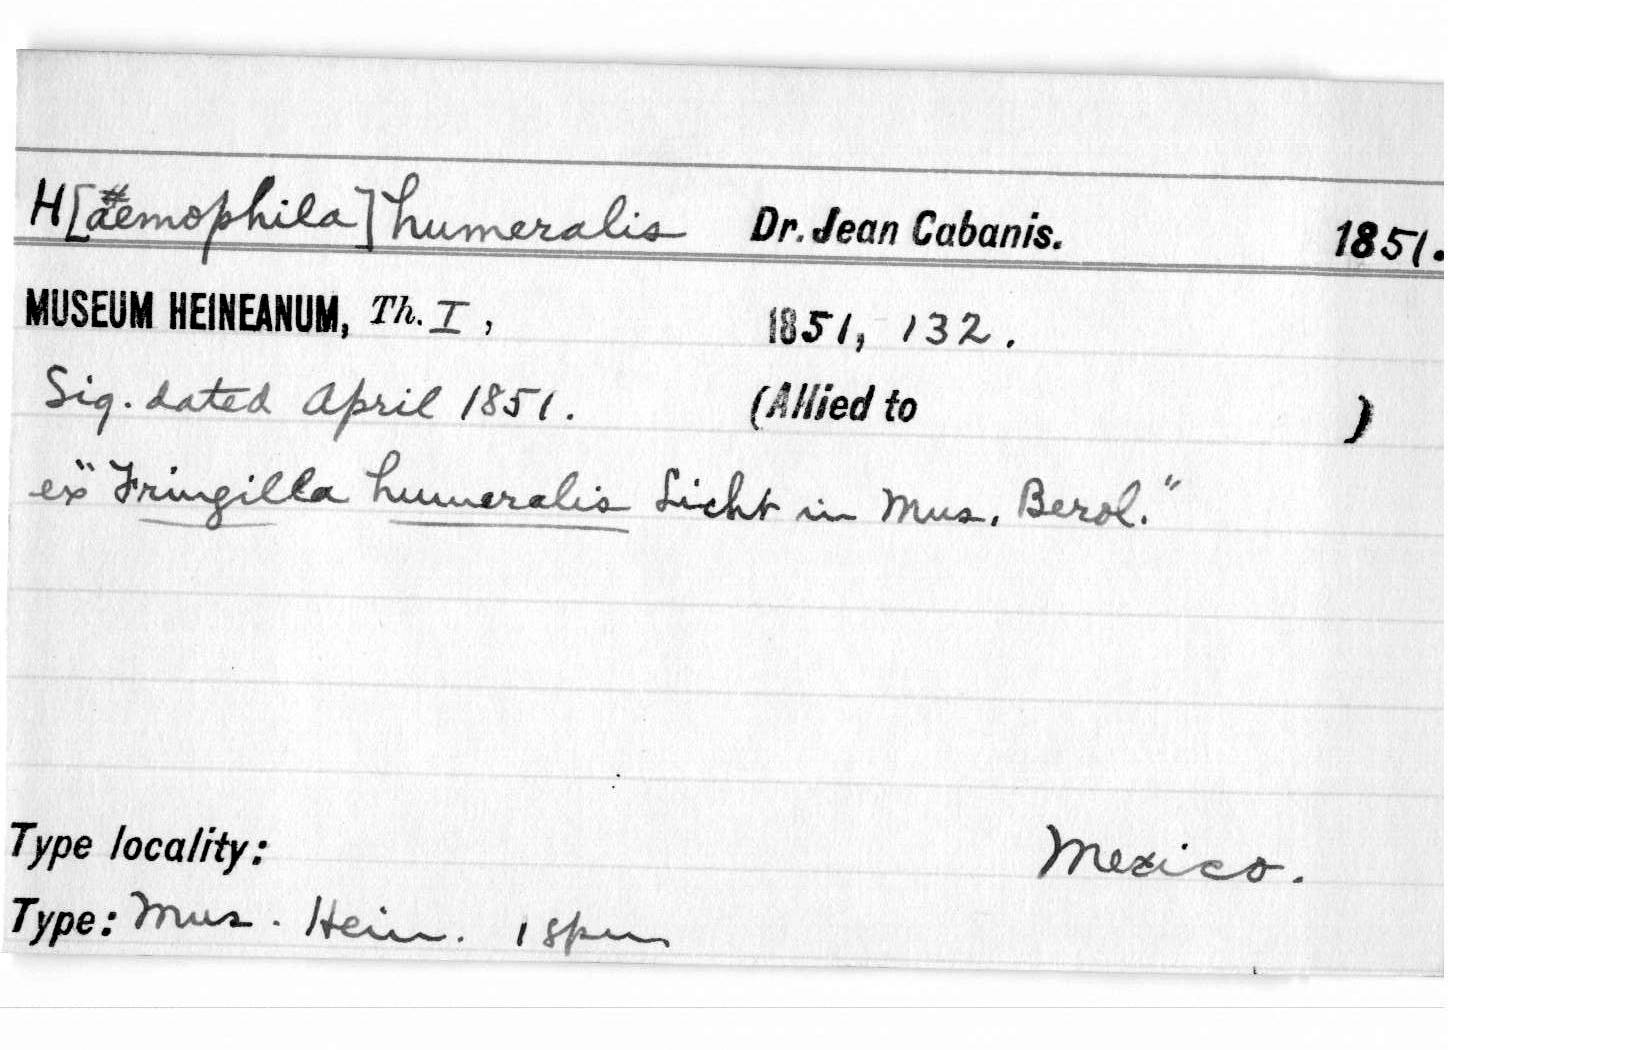 H[aemophila] humeralis Dr. Jean Cabanis. 1851.
MUSEUM HEINEANUM, Th. I, 1851, 132.
Sig. dated April 1851. (Allied to )
ex "Fringilla humeralis Licht in Mus. Berol."
Type locality: Mexico.
Type: Mus. Hein. 1 spm